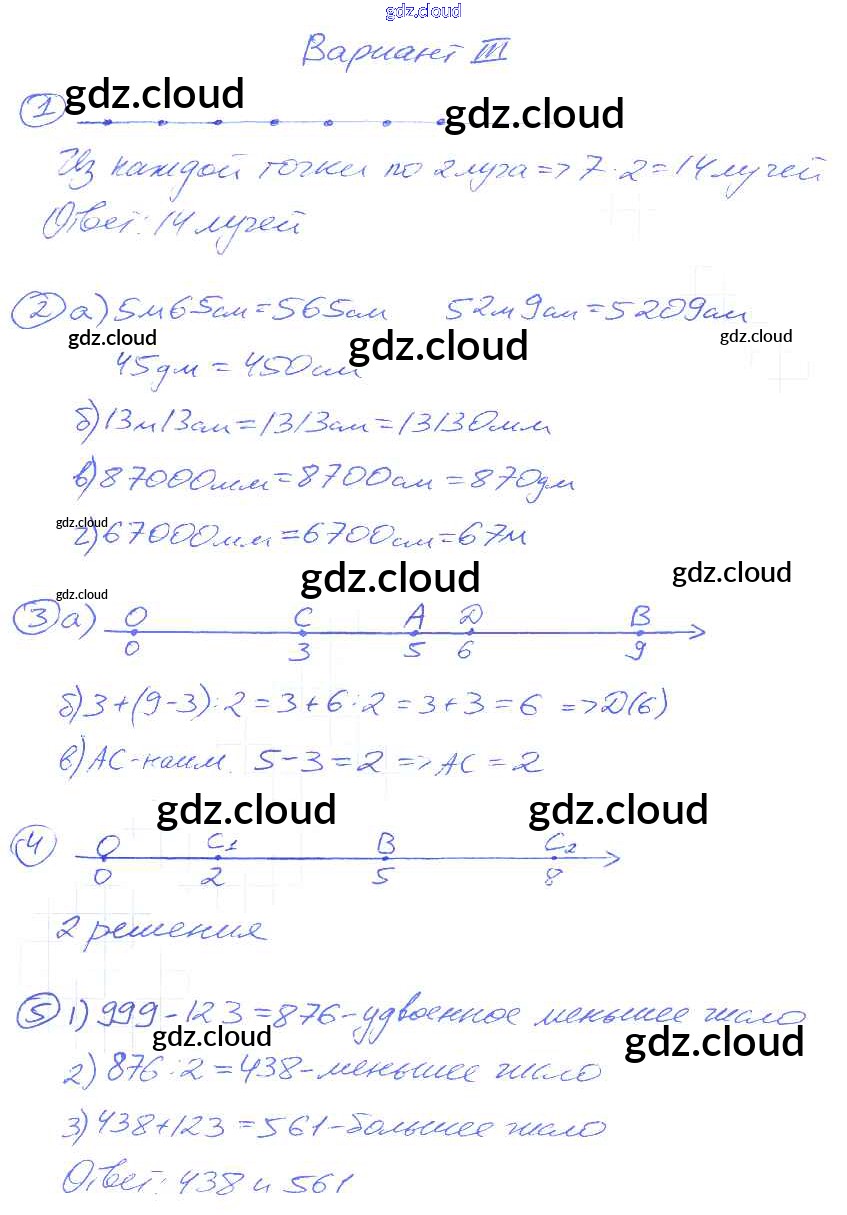 gdz.cloud
Вариант III
① gdz.cloud gdz.cloud
Из каждой точки по 2 луча => 7 · 2 = 14 лучей
Ответ: 14 лучей
② а) 5м65см = 565см 52м9см = 5209см
gdz.cloud gdz.cloud gdz.cloud
45дм = 450см
б) 13м13см = 1313см = 13130мм
в) 87000мм = 8700см = 870дм
gdz.cloud
г) 67000мм = 6700см = 67м
gdz.cloud gdz.cloud
gdz.cloud
③ а) O C A D B
0 3 5 6 9
б) 3 + (9 - 3) : 2 = 3 + 6 : 2 = 3 + 3 = 6 => D(6)
в) AC - наим. 5 - 3 = 2 => AC = 2
gdz.cloud gdz.cloud
④ O C₁ B C₂
0 2 5 8
2 решения
⑤ 1) 999 - 123 = 876 - удвоенное меньшее число
gdz.cloud gdz.cloud
2) 876 : 2 = 438 - меньшее число
3) 438 + 123 = 561 - большее число
Ответ: 438 и 561